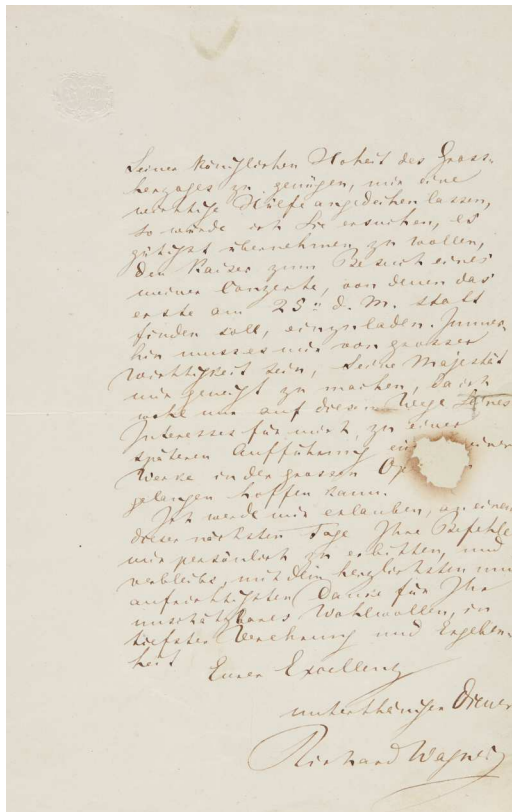 Seiner Königlichen Hoheit des Gross-
herzoges zu genügen, mir eine
wichtige Hilfe angedeihen lassen,
so würde ich Sie ersuchen, es
gütigst übernehmen zu wollen,
den Kaiser zum Besuch eines
meiner Conzerte, von denen das
erste am 25n d. M. statt
finden soll, einzuladen. Immer-
hin muss es mir von grosser
Wichtigkeit sein, Seine Majestät
mir geneigt zu machen, da ich
wohl nur auf diesem Wege Seines
Interesses für mich, zu einer
späteren Aufführung einer
Werke in der grossen Op
gelangen hoffen kann.
Ich werde mir erlauben, an einem
dieser nächsten Tage Ihre Befehle
mir persönlich zu erbitten, und
verbleibe, mit dem herzlichsten und
aufrichtigsten Danke für Ihr
unschätzbares Wohlwollen, in
tiefster Verehrung und Ergeben-
heit
Eurer Excellenz
unterthäniger Diener
Richard Wagner